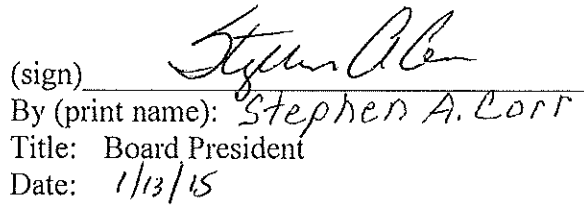 (sign) Stephen A Corr
By (print name): Stephen A. Corr
Title: Board President
Date: 1/13/15